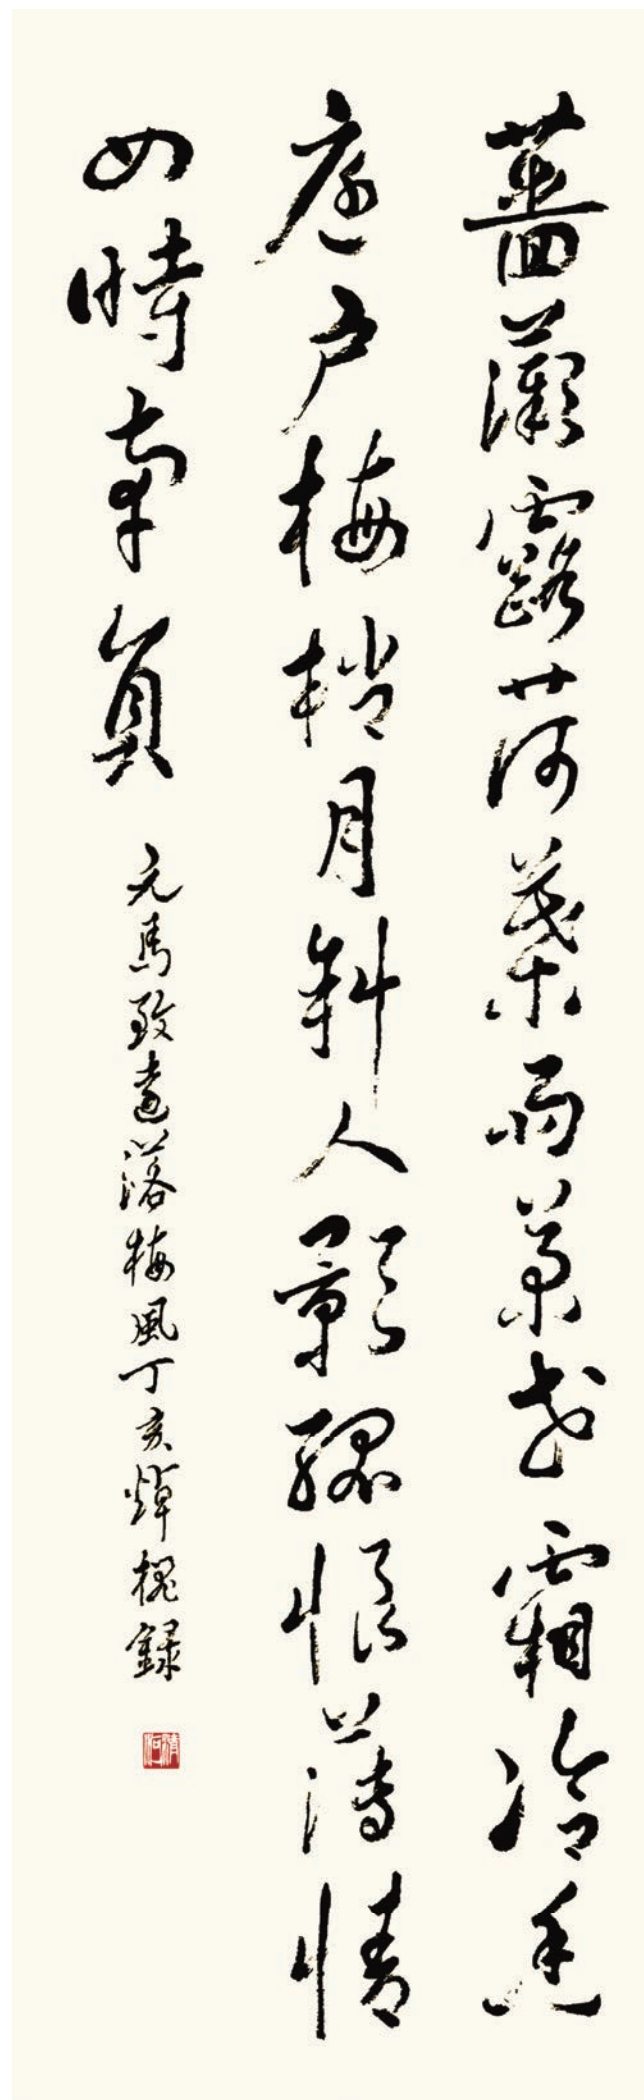 薔薇露荷葉雨菊花霜冷香
庭户梅梢月斜人影孤恨薄情
四時辜負
元馬致遠落梅風丁亥焯槐録